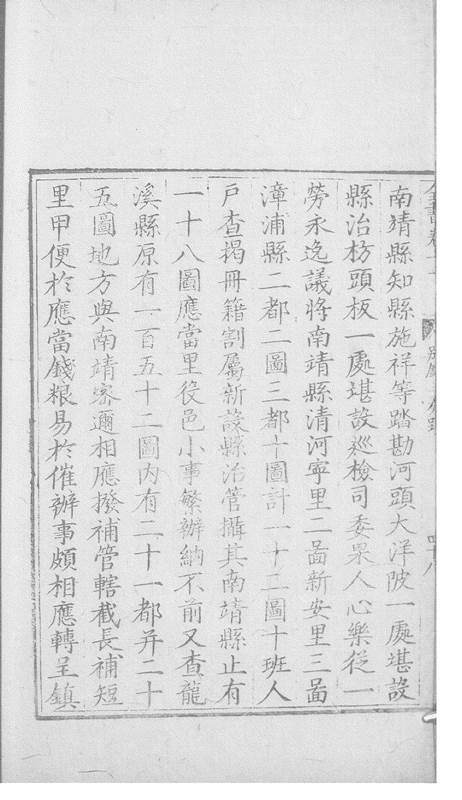 南靖縣知縣施祥等踏勘河頭大洋陂一處堪設
縣治枋頭板一處堪設巡檢司委果人心樂從一
勞永逸議將南靖縣清河寧里二啚新安里三啚
漳浦縣二都二圖三都十圖計一十二圖十班人
戶查揭冊籍割屬新設縣治管攝其南靖縣止有
一十八圖應當里役邑小事繁辦納不前又查龍
溪縣原有一百五十二圖內有二十一都并二十
五圖地方與南靖密邇相應撥補管轄截長補短
里甲便於應當錢粮易於催辦事頗相應轉呈鎮